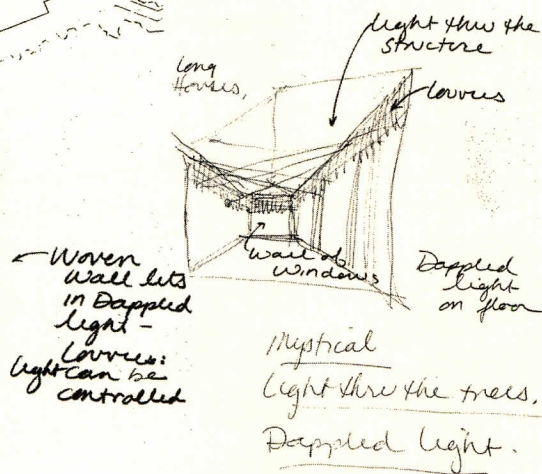 light thru the
structure
Long
Houses,
louvres
wall of
windows
Woven
Wall lets
in Dappled
light –
Louvres:
light can be
controlled
Dappled
light
on floor
Mystical
Light thru the trees.
Dappled light.